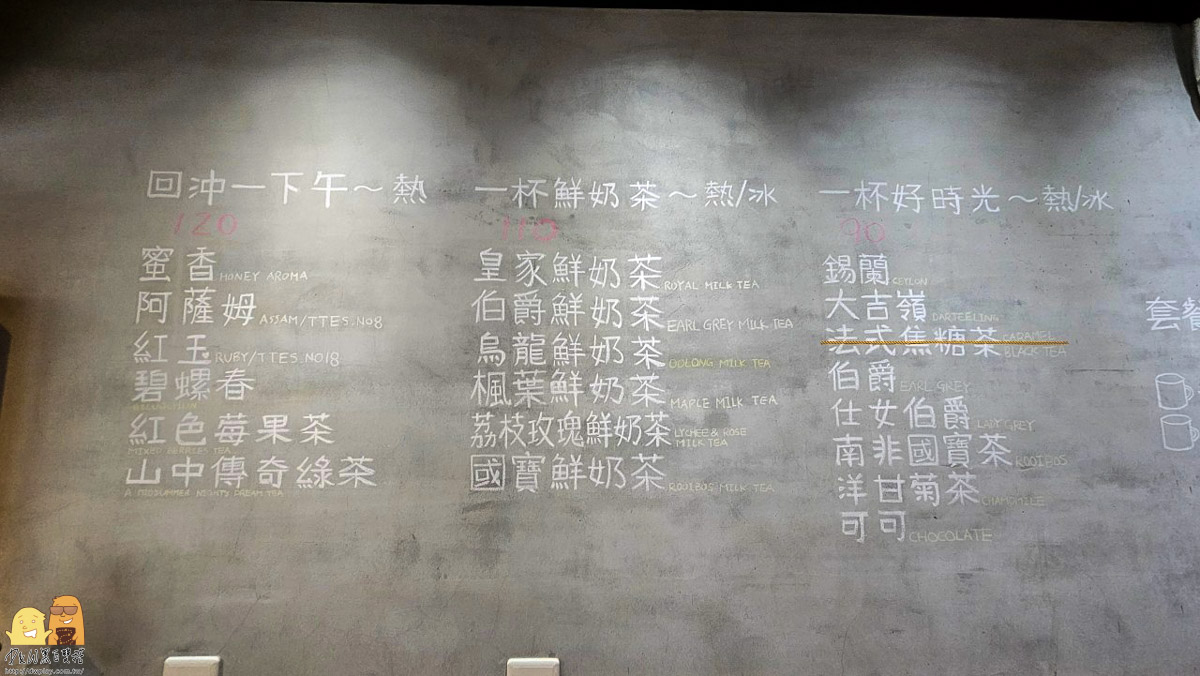 回沖一下午～熱
120
蜜香 HONEY AROMA
阿薩姆 ASSAM/TTES.NO8
紅玉 RUBY/TTES.NO18
碧螺春
紅色莓果茶
MIXED BERRIES TEA
山中傳奇綠茶
A MIDSUMMER NIGHTS DREAM TEA
一杯鮮奶茶～熱/冰
110
皇家鮮奶茶 ROYAL MILK TEA
伯爵鮮奶茶 EARL GREY MILK TEA
烏龍鮮奶茶 OOLONG MILK TEA
楓葉鮮奶茶 MAPLE MILK TEA
荔枝玫瑰鮮奶茶 LYCHEE & ROSE
MILK TEA
國寶鮮奶茶 ROOIBOS MILK TEA
一杯好時光～熱/冰
90
錫蘭 CEYLON
大吉嶺 DARTEELING
法式焦糖茶 CARAMEL
BLACK TEA
伯爵 EARL GREY
仕女伯爵 LADY GREY
南非國寶茶 ROOIBOS
洋甘菊茶 CHAMOMILE
可可 CHOCOLATE
套餐
http://dwplay.com.tw/